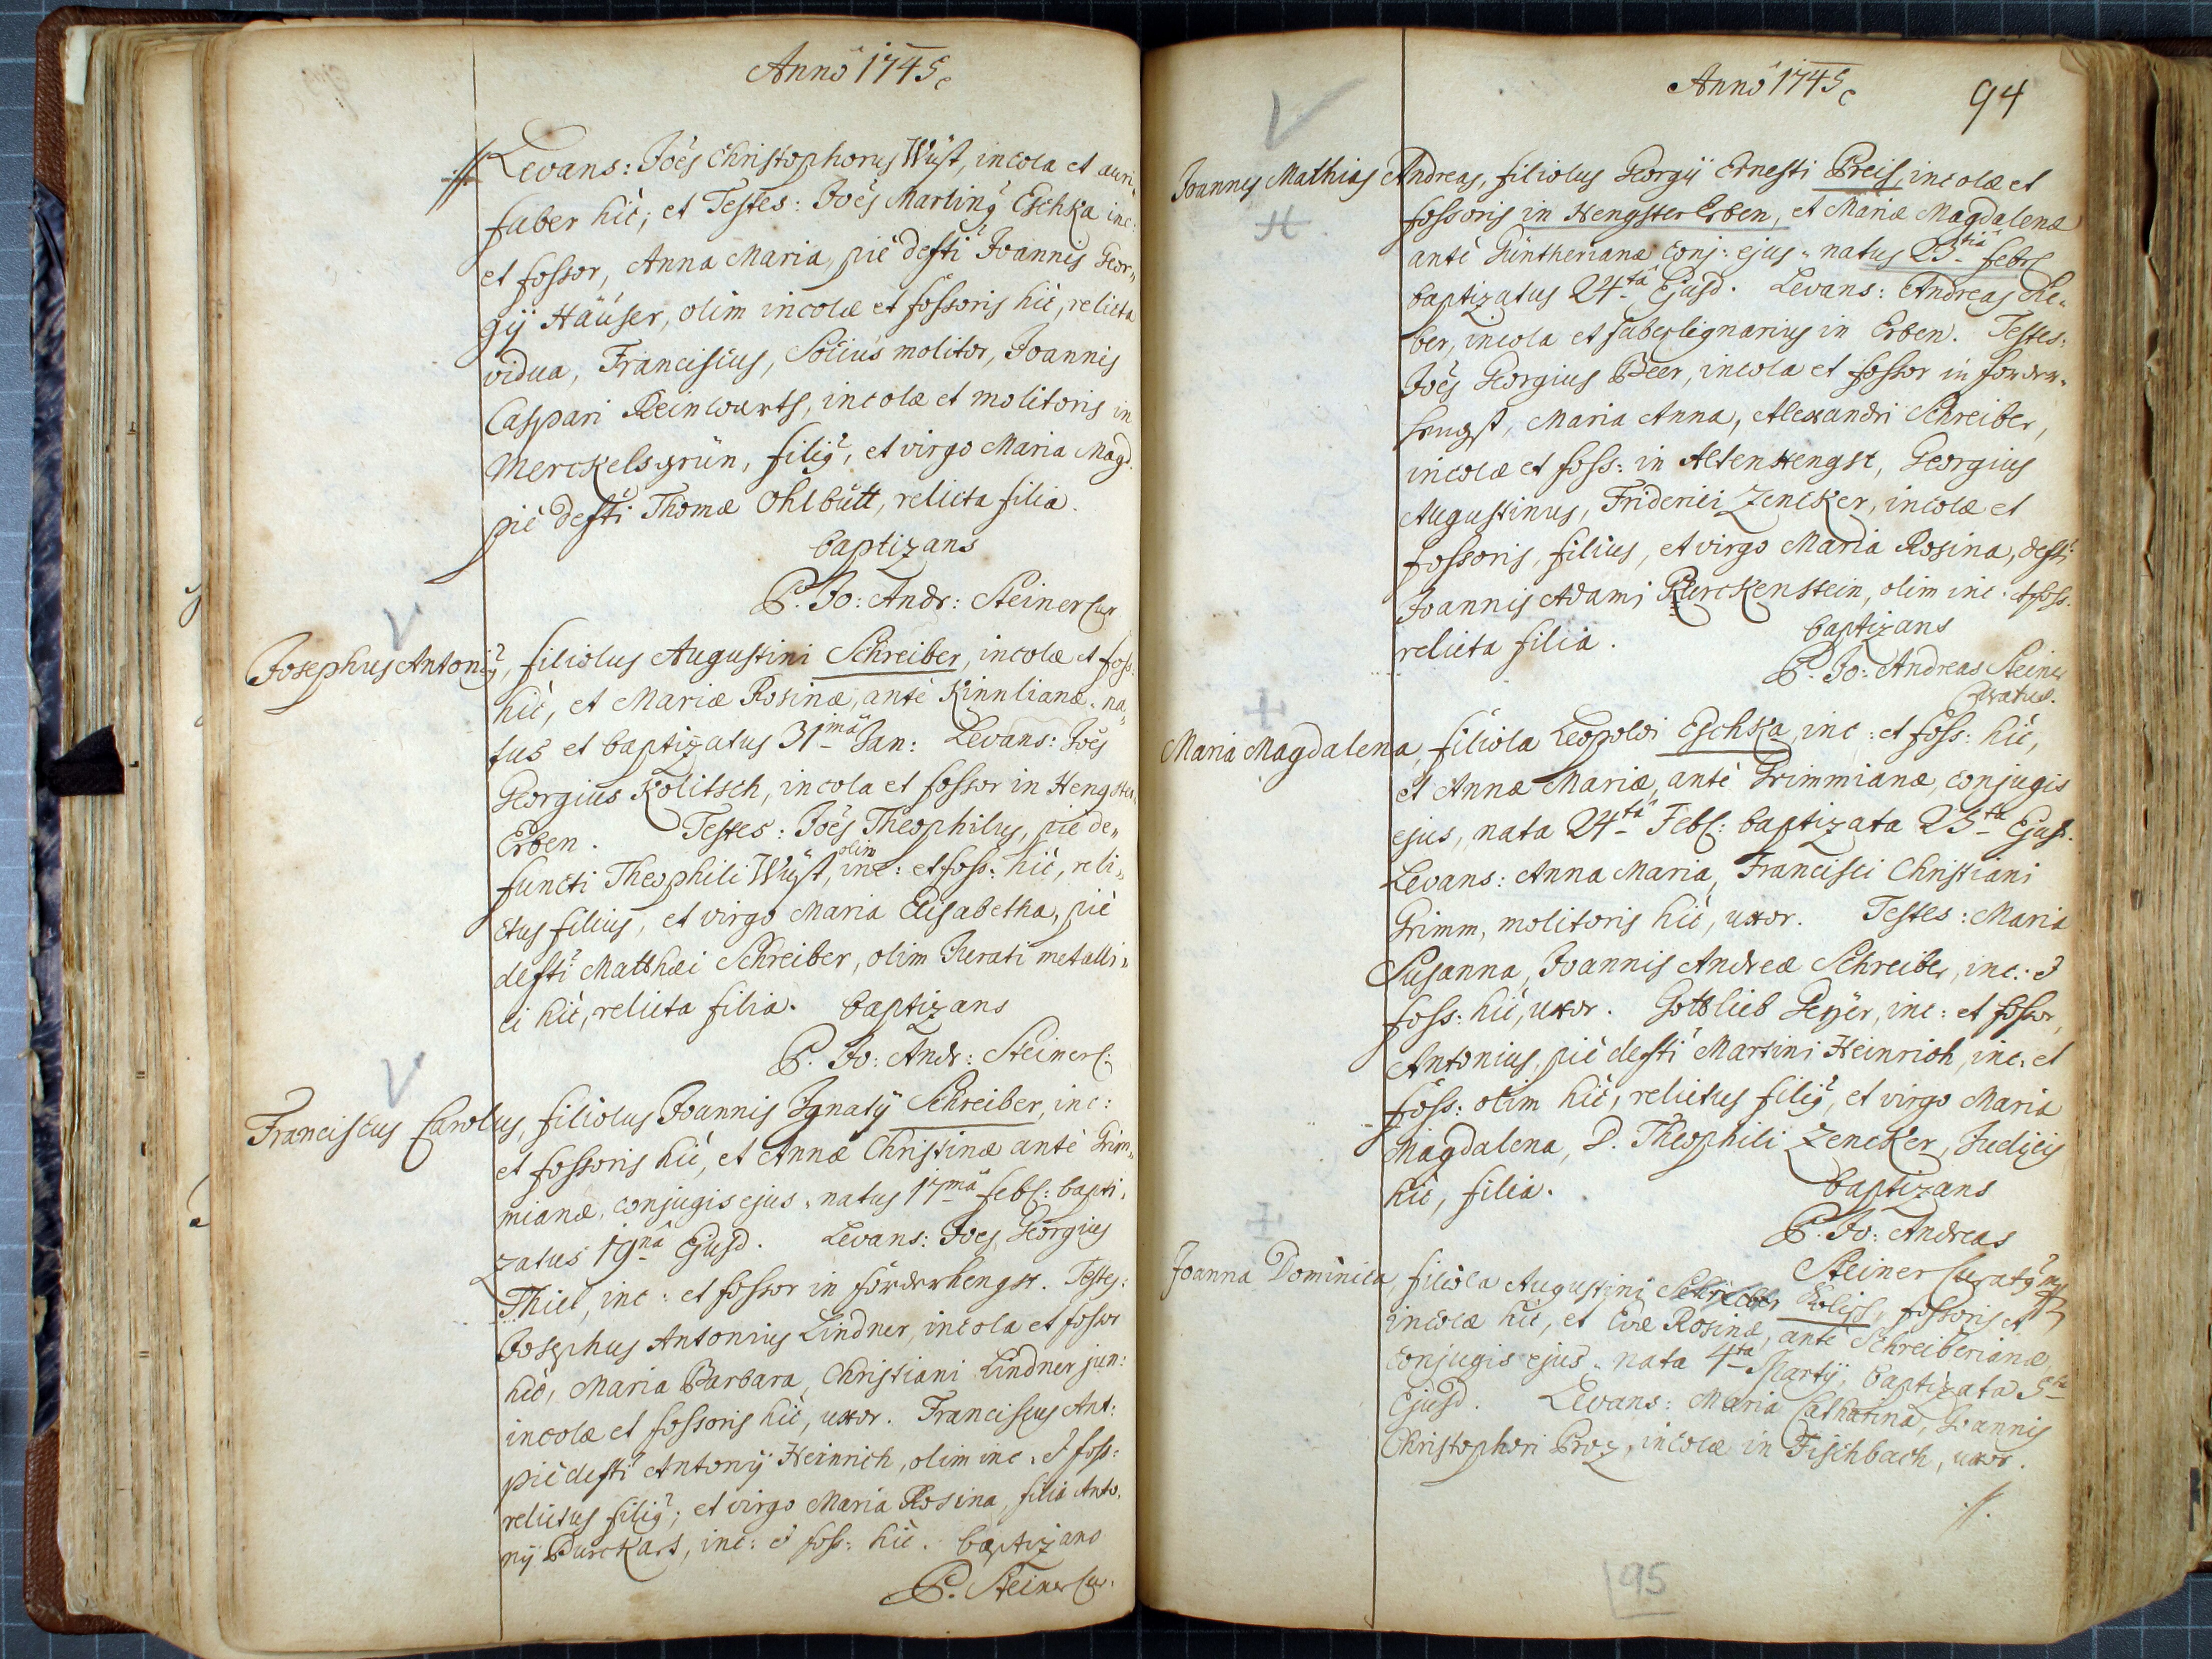 Anno 1745
Levans: Joēs Christophorus Wüst, incola et auri„
faber hic; et Testes: Joēs Martinꝰ Eschka inc:
et fossor, Anna Maria, pie defti Joannis Geor„
gij Häuser, olim incolæ et fossoris hic, relicta
vidua, Franciscus, Socius molitor, Joannis
Caspari Reinwarts, incolæ et molitoris in
Merckelsgrün, filiꝰ, et virgo Maria Magd.
piè defti Thomæ Ohlbütt, relicta filia.
baptizans
P. Jo: Andr: Steiner Cur
Josephus Antoniꝰ, filiolus Augustini Schreiber, incolæ et foss.
hic, et Mariæ Rosinæ, antè Kinnlianæ. na„
tus et baptizatus 31ma Jan: Levans: Joēs
Georgius Kolitsch, incola et fossor in Hengster„
Erben. Testes: Joēs Theophilus, piè de„
functi Theophili Wüst, olim inc: et foss: hic, reli„
ctus filius, et virgo Maria Elisabetha, piè
defti Matthæi Schreiber, olim Jurati metalli„
ci hic, relicta filia. baptizans
P. Jo: Andr: Steiner C:
Franciscus Carolus, filiolus Joannis Ignatij Schreiber, inc:
et fossoris hic, et Annæ Christinæ antè Grim„
mianæ, conjugis ejus. natus 17ma febr: bapti„
zatus 19na Ejusd. Levans: Joes Georgius
Thiel, inc: et fossor in förderhengst. Testes:
Josephus Antonius Lindner, incola et fossor
hic, Maria Barbara, Christiani Lindner jun:
incolæ et fossoris hic, uxor. Franciscus Ant:
piè defti Antonij Heinrich, olim inc. & foss:
relictus filiꝰ; et virgo Maria Rosina, filia Anto„
nij Purckart, inc: & foss: hic. baptizans
P. Steiner Cur.
Anno 1745
94
Joannes Mathias Andreas, filiolus Georgij Ernesti Preis, incolæ et
fossoris in Hengster Erben, et Mariæ Magdalenæ
antè Güntherianæ conj: ejus. natus 23tia febr
baptizatus 24ta Ejusd. Levans: Andreas Re„
ber, incola et faber lignarius in Erben. Testes:
Joēs Georgius Beer, incola et fossor in forder„
hengst, Maria Anna, Alexandri Schreiber,
incolæ et foss: in Altenhengst, Georgius
Augustinus, Friderici Zencker, incolæ et
fossoris, filius, et virgo Maria Rosina, defti
Joannis Adami Purckenstein, olim inc. et foss.
relicta filia. baptizans
P. Jo: Andreas Steiner
Curatus.
Maria Magdalena, filiola Leopoldi Eschka, inc: et foss: hic,
et Annæ Mariæ, antè Grimmianæ, conjugis
ejus, nata 24ta Febr: baptizata 25ta Ejusd.
Levans: Anna Maria, Francisci Christiani
Grimm, molitoris hic, uxor. Testes: Maria
Susanna, Joannis Andreæ Schreiber, inc: &
foss: hic, uxor. Gottlieb Peÿer, inc: et fossor,
Antonius, piè defti Martini Heinrich, inc: et
foss: olim hic, relictus filiꝰ, et virgo Maria
Magdalena, D. Theophili Zencker, Judicis
hic, filia. baptizans
P. Jo: Andreas
Steiner Curatꝰ
Joanna Dominica, filiola Augustini Schreiber Kolitsch, fossoris et
incolæ hic, et Evæ Rosinæ, antè Schreiberianæ,
conjugis ejus. nata 4ta Martij, baptizata 5ta
Ejusd. Levans: Maria Catharina, Joannis
Christophori Proz, incolæ in Fischbach, uxor.
95